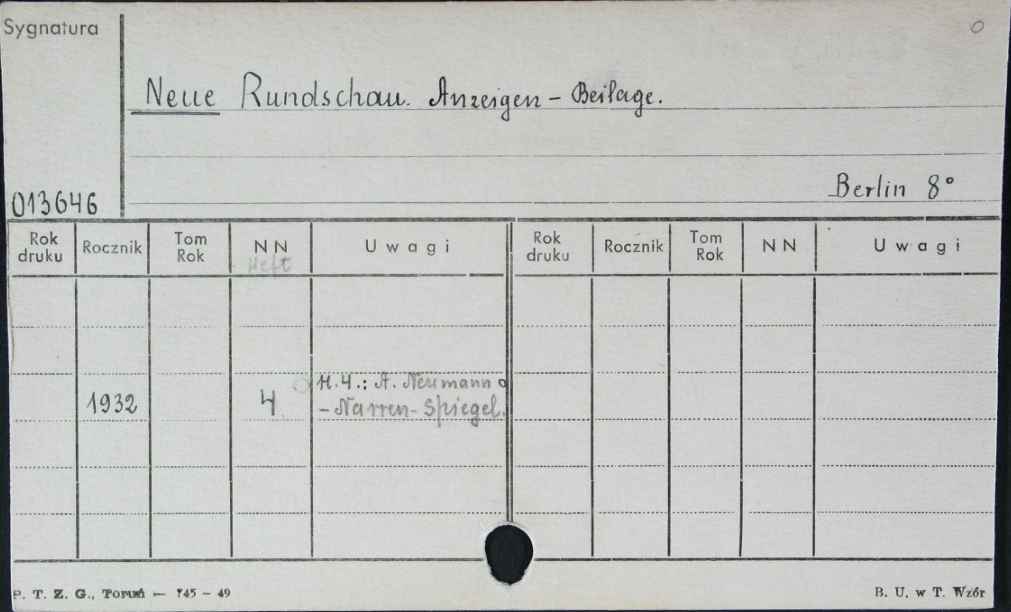 Sygnatura
o
Neue Rundschau. Anzeigen - Beilage.
Berlin 8°
013646
Rok druku Rocznik Tom Rok NN Uwagi Rok druku Rocznik Tom Rok NN Uwagi
Heft
H.4.: A. Neumann
1932 4 - Narren-Spiegel.
P. T. Z. G., Toruń — 745 - 49 B. U. w T. Wzór